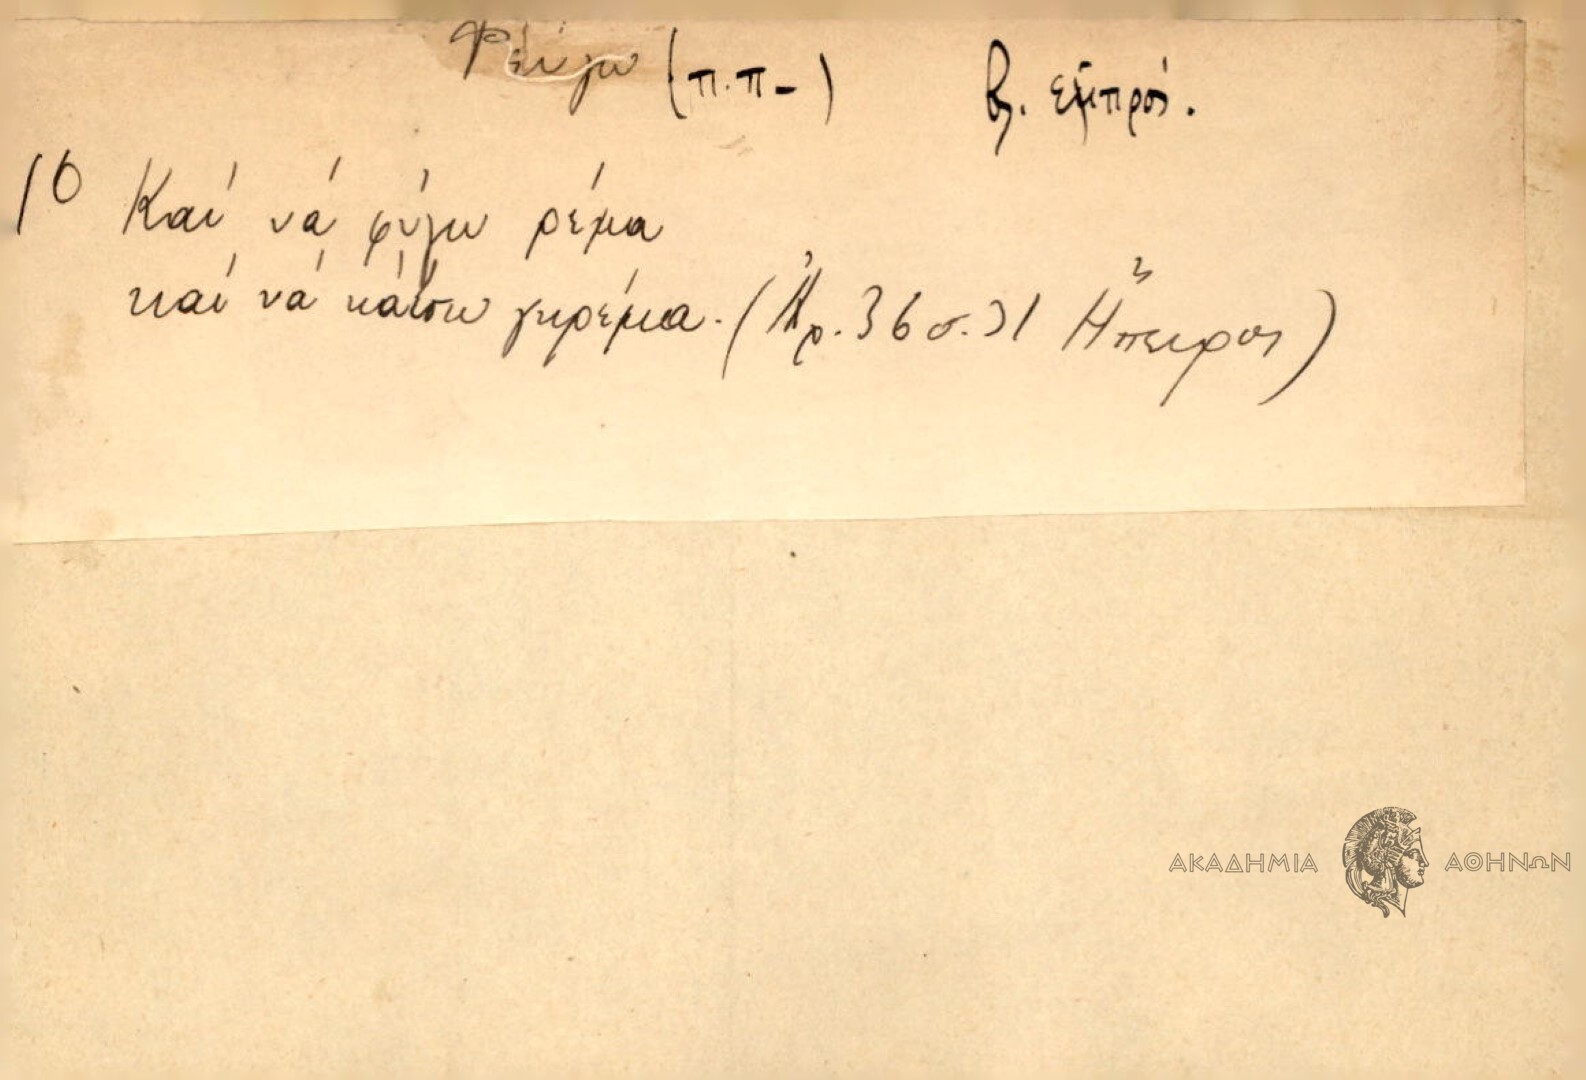 Φεύγω (π.π-) βλ. εμπρός.
10 Καί νά φύγω ρέμα
καί νά κάτσω γκρέμα. (Ἀρ. 36 σ. 31 Ἤπειρος)
ΑΚΑΔΗΜΙΑ ΑΘΗΝΩΝ